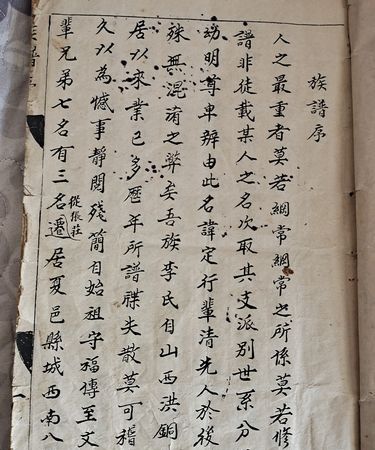 族譜序
人之最重者莫若綱常綱常之所係莫若修
譜非徒載某人之名次取其支派別世系分
幼明尊卑辨由此名諱定行輩清先人於後
殊無混淆之弊矣吾族李氏自山西洪銅
居以來業已多歷年所譜牒失散莫可稽
久以為憾事靜閱殘簡自始祖守福傳至文
輩兄弟七名有三名從張莊遷居夏邑縣城西南八